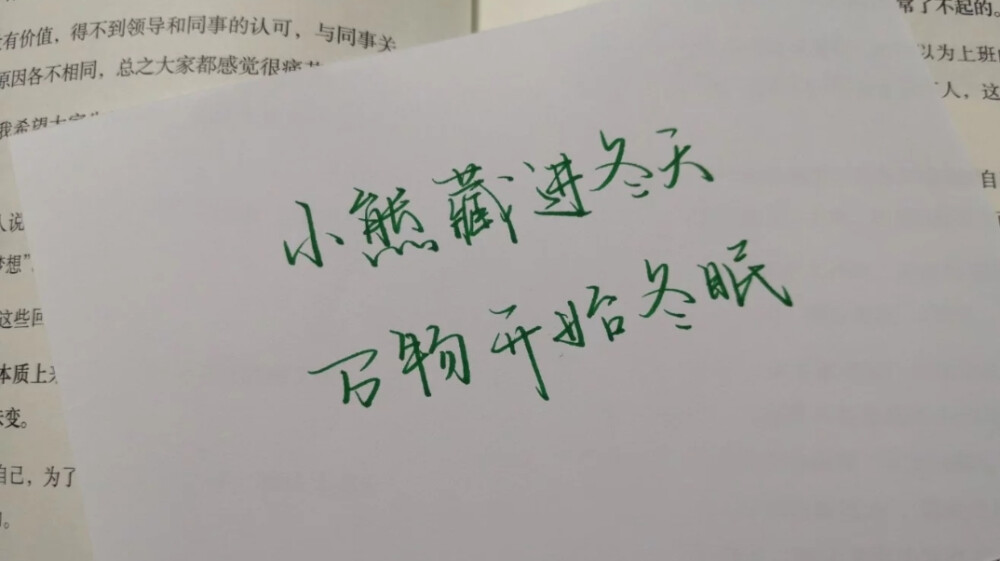 有价值，得不到领导和同事的认可，与同事关
原因各不相同，总之大家都感觉很痛苦
我希望大家
人说
梦想”
这些回
体质上
变。
自己，为了
的。
小熊藏进冬天
万物开始冬眠
常了不起的。
以为上班
人，这
自